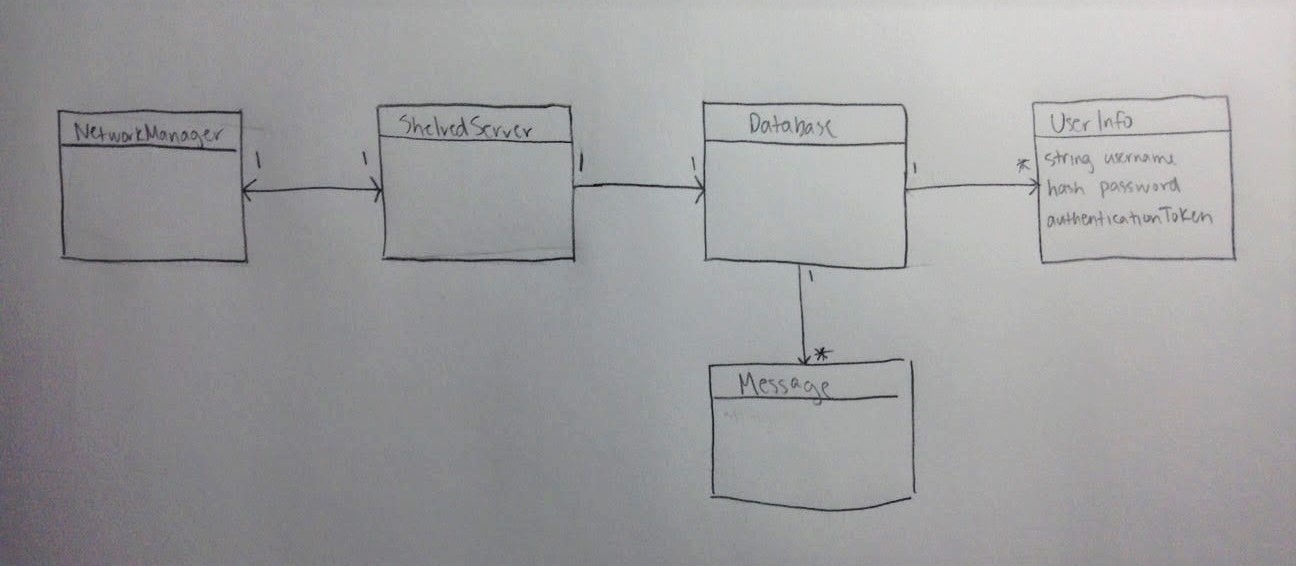 NetworkManager
1
1
ShelvedServer
1
1
Database
1
*
UserInfo
string username
hash password
authenticationToken
1
*
Message